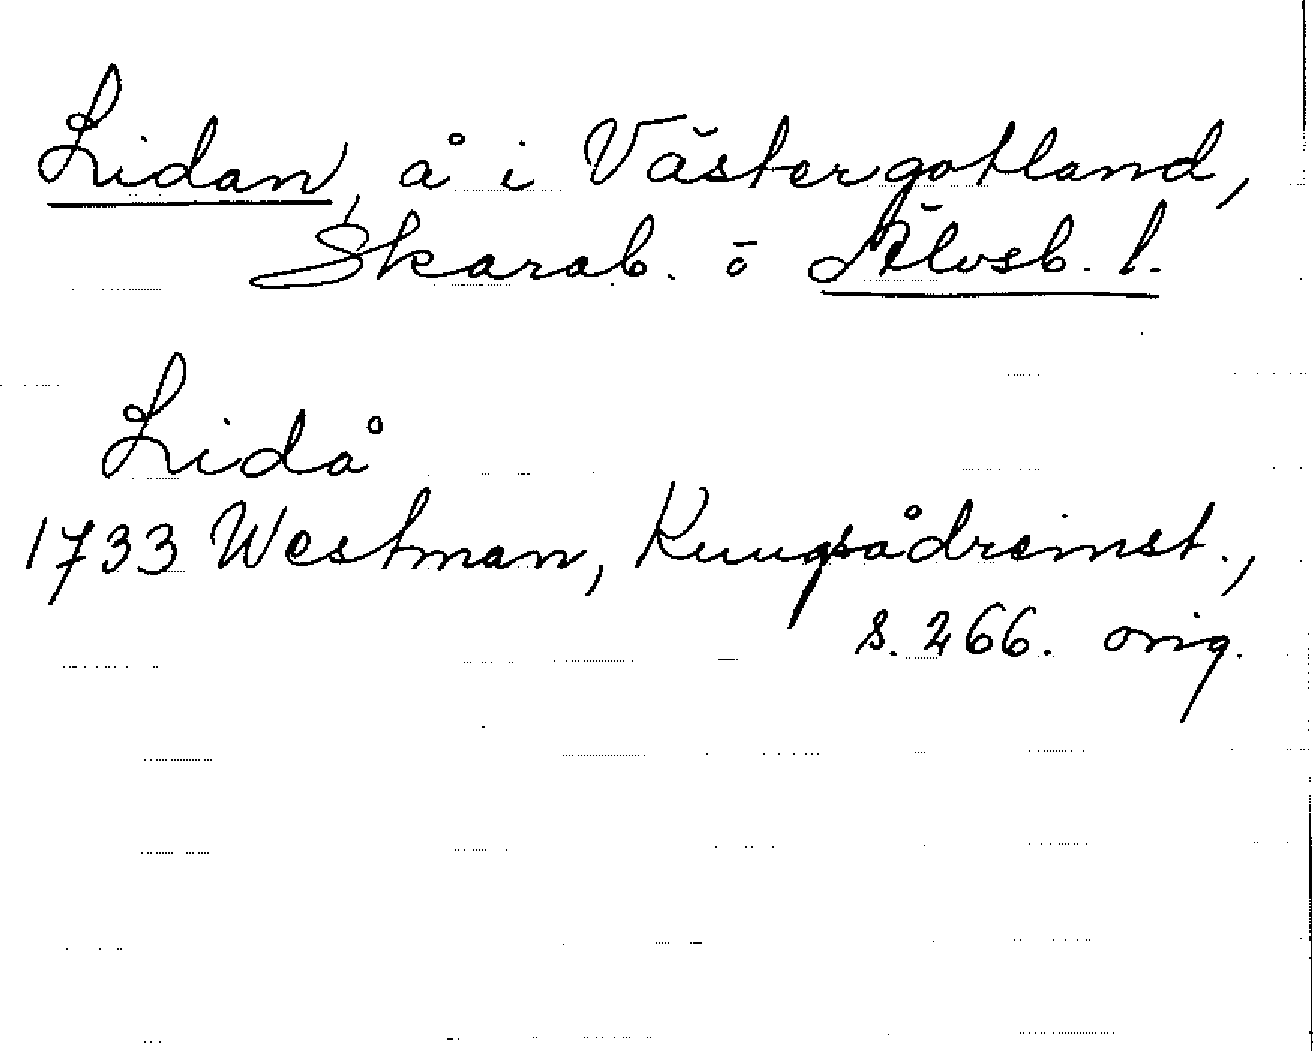 Lidan, å i Västergötland,
Skarab. o Älvsb. l.
Lidå
1733 Westman, Kungsådreinst.,
s. 266. orig.